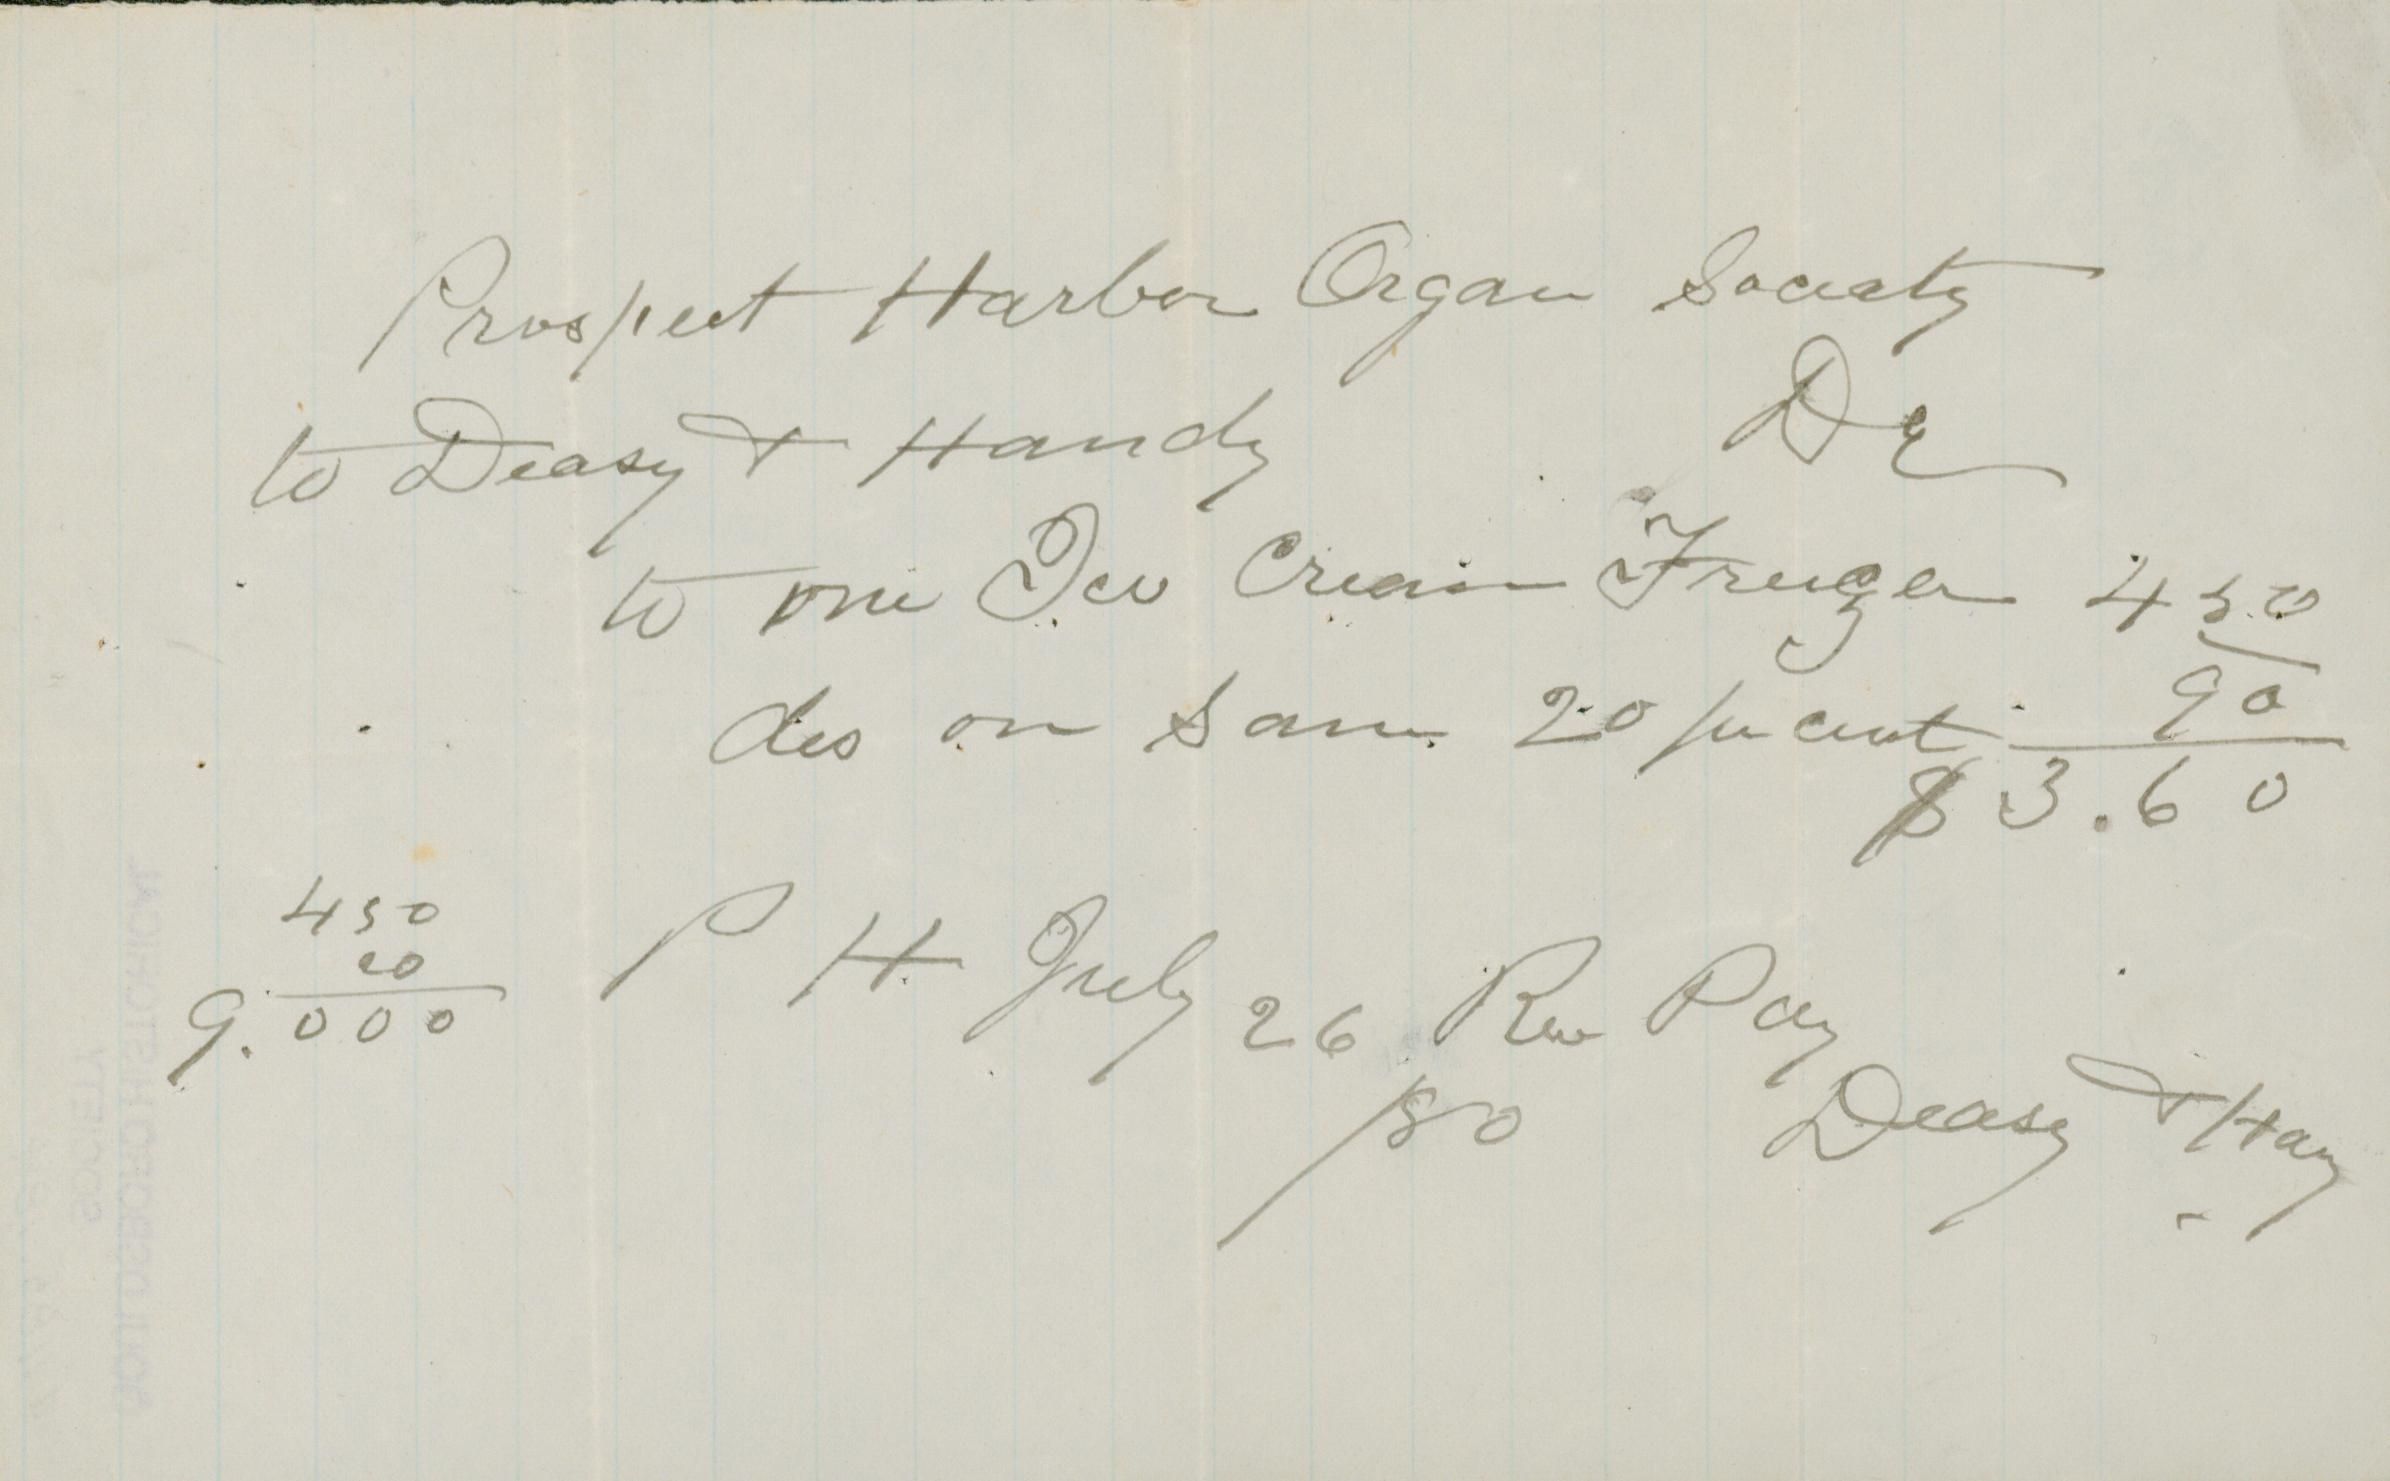 Prospect Harbor Organ Society
Dr
to Deasy & Handy
to one Ice Cream Freezer 4 50
des on Same 20 per cent 90
$ 3.60
450
20
9.000
P H July 26 Rec Pay
/80 Deasy & Handy
GOULDSBORO HISTORICAL
SOCIETY